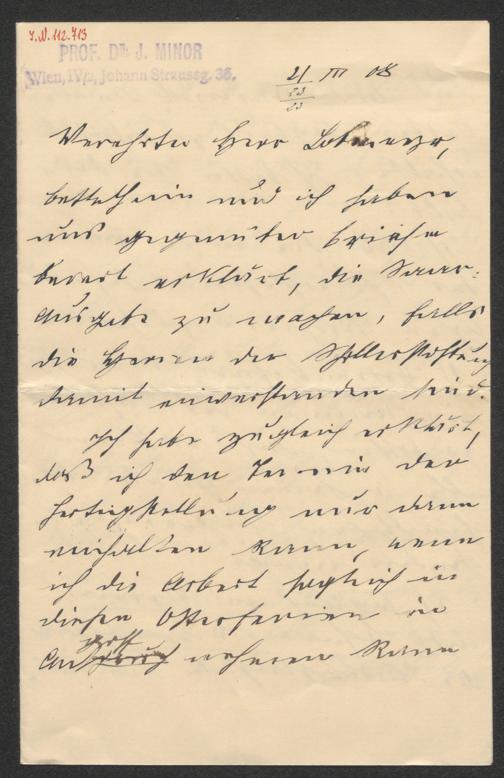 I.N. 112.713
PROF. DR. J. MINOR
Wien, IV/2, Johann Straussg. 36.
21 III 08
23
23
Verehrter Herr
Bettelheim und ich haben
uns gegenüber
bereit erklärt, die Saar-
Ausgabe zu machen, falls
die Herren der Schillerstiftung
damit einverstanden sind.
Ich habe zugleich erklärt,
daß ich den Termin der
Fertigstellung nur dann
einhalten kann, wenn
ich die Arbeit sogleich in
diesen Osterferien in
Angriff nehmen kann